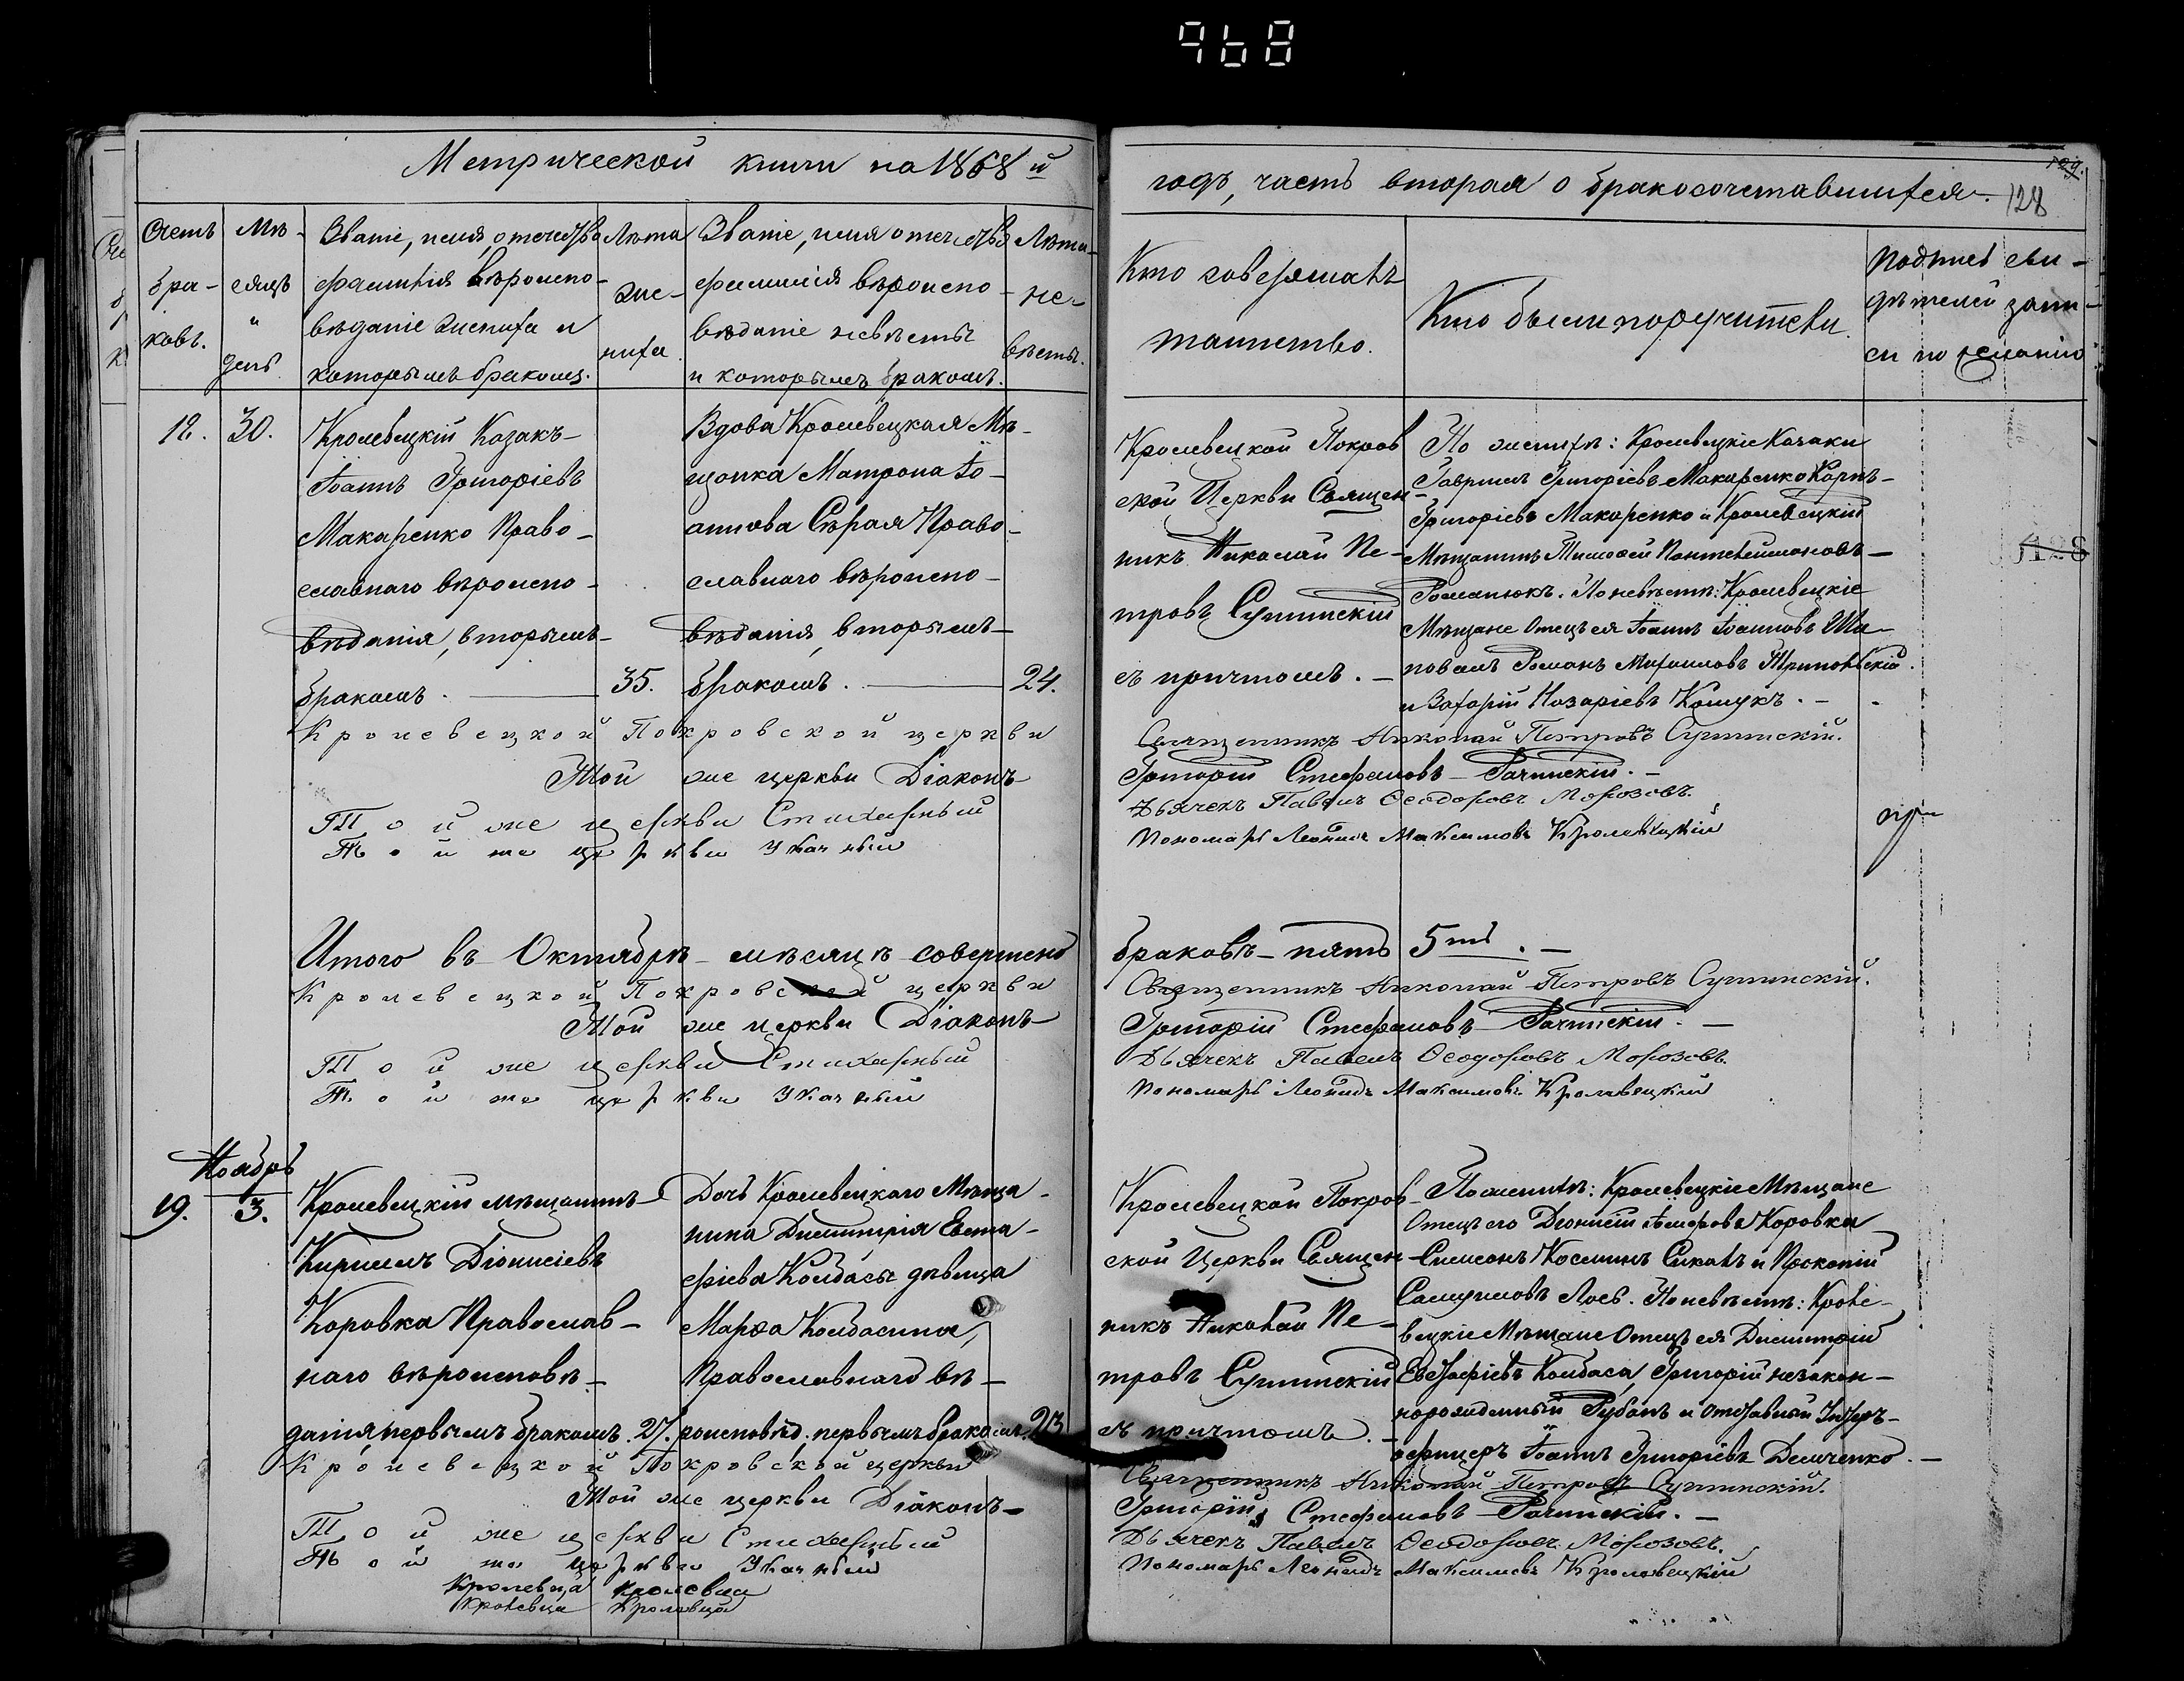 968
Метрической книги на 1868й
годъ, часть вторая о бракосочетавшихся.
129.
128
Счетъ бра-ковъ.
Мѣ-сяцъ и день
Званіе, имя, отечество
фамилія вѣроиспо-
вѣданіе жениха и
которымъ бракомъ.
Лѣта же-ниха.
Званіе, имя отечество
фамилія вѣроиспо-
вѣданіе невѣсты
и которымъ бракомъ.
Лѣта не-вѣсты.
Кто совершалъ
таинство.
Кто были поручители.
Подпись сви-
дѣтелей запи-
си по желанію
18.
30.
Кролевецкій Козакъ
Іоаннъ Григоріевъ
Макаренко Право-
славнаго вѣроиспо-
вѣданія, вторымъ
бракомъ.
35.
Вдова Кролевецкая Мѣ-
щанка Матрона Іо-
аннова Сѣрая Право-
славнаго вѣроиспо-
вѣданія, вторымъ
бракомъ.
24.
Кролевецкой Покров
ской Церкви Священ-
никъ Николай Пе-
тровъ Сушинскій
съ причтомъ.
По женихѣ: Кролевецкіе Казаки
Гавриилъ Григоріевъ Макаренко Карпъ
Григоріевъ Макаренко и Кролевецкій
Мѣщанинъ Тимофей Пантелеймоновъ
Романюкъ. По невѣстѣ: Кролевецкіе
Мѣщане Отецъ ея Іоаннъ Іоанновъ Ша-
повалъ Романъ Михаиловъ
и Захарій Назаріевъ
128
Кролевецкой Покровской церкви Священникъ Николай Петровъ Сушинскій.
Той же церкви Діаконъ Григорій Стефановъ Рачинскій.
Той же церкви Стихарный Дьячекъ Павелъ Ѳеодоровъ Морозовъ.
Той же церкви Указный Пономарь Леонидъ Максимовъ Кролевецкій
Итого въ Октябрѣ мѣсяцѣ совершено браковъ пять 5ть.
Кролевецкой Покровской церкви Священникъ Николай Петровъ Сушинскій.
Той же церкви Діаконъ Григорій Стефановъ Рачинскій.
Той же церкви Стихарный Дьячекъ Павелъ Ѳеодоровъ Морозовъ.
Той же церкви Указный Пономарь Леонидъ Максимовъ Кролевецкій
Ноябрь
19.
3.
Кролевецкій мѣщанинъ
Кириллъ Діонисіевъ
Коровка Православ-
наго вѣроисповѣ-
данія, первымъ бракомъ.
27.
Дочь Кролевецкаго Мѣща-
нина Димитрія Евста-
фіева Колбасы дѣвица
Марѳа Колбасина,
Православнаго вѣ-
роисповѣд. первымъ бракомъ.
23
Кролевецкой Покров-
ской Церкви Священ-
никъ Николай Пе-
тровъ Сушинскій
съ причтомъ.
По женихѣ: Кролевецкіе Мѣщане
Отецъ его Діонисій Коровка
Симеонъ Косминъ и Прокопій
Самуиловъ Лось. По невѣстѣ: Кроле-
вецкіе Мѣщане Отецъ ея Димитрій
Евстафіевъ Колбаса, Григорій незакон-
норожденный Рубанъ и отставный Унтеръ-
офицеръ Іоаннъ Григоріевъ Демченко.
Кролевецкой Покровской церкви Священникъ Николай Петровъ Сушинскій.
Той же церкви Діаконъ Григорій Стефановъ Рачинскій.
Той же церкви Стихарный Дьячекъ Павелъ Ѳеодоровъ Морозовъ.
Той же церкви Указный Пономарь Леонидъ Максимовъ Кролевецкій
Кролевца Кролевца
Кролевца Кролевца